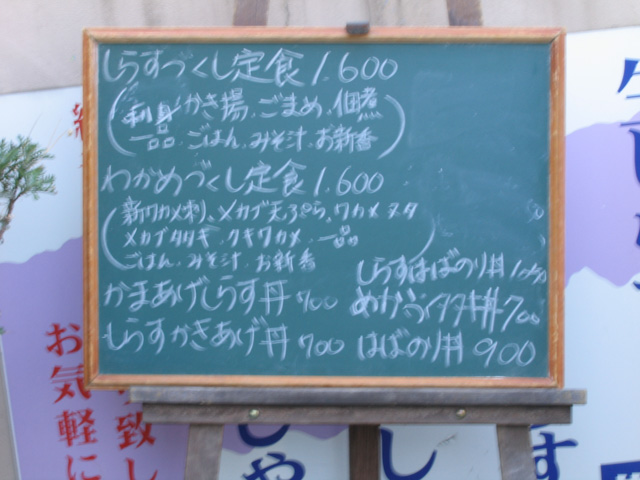 しらすづくし定食 1.600
(刺身 かき揚、ごまめ、佃煮
一品 ごはん、みそ汁、お新香)
わかめづくし定食 1.600
(新ワカメ刺、メカブ天ぷら、ワカメヌタ
メカブタタキ、クキワカメ、一品
ごはん、みそ汁、お新香)
しらすはばのり丼
かまあげしらす丼 700
めかぶタタキ丼 700
しらすかきあげ丼 700
はばのり丼 900
お気軽に
致し